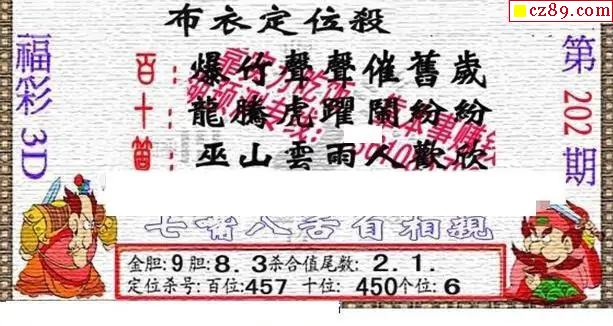 cz89.com
布衣定位殺
福彩3D
第202期
百：爆竹聲聲催舊歲
十：龍騰虎躍鬧紛紛
箇：巫山雲雨人歡欣
七嘴八舌自相親
金胆:9胆:8.3杀合值尾数:2.1.
定位杀号:百位:457 十位: 450个位:6